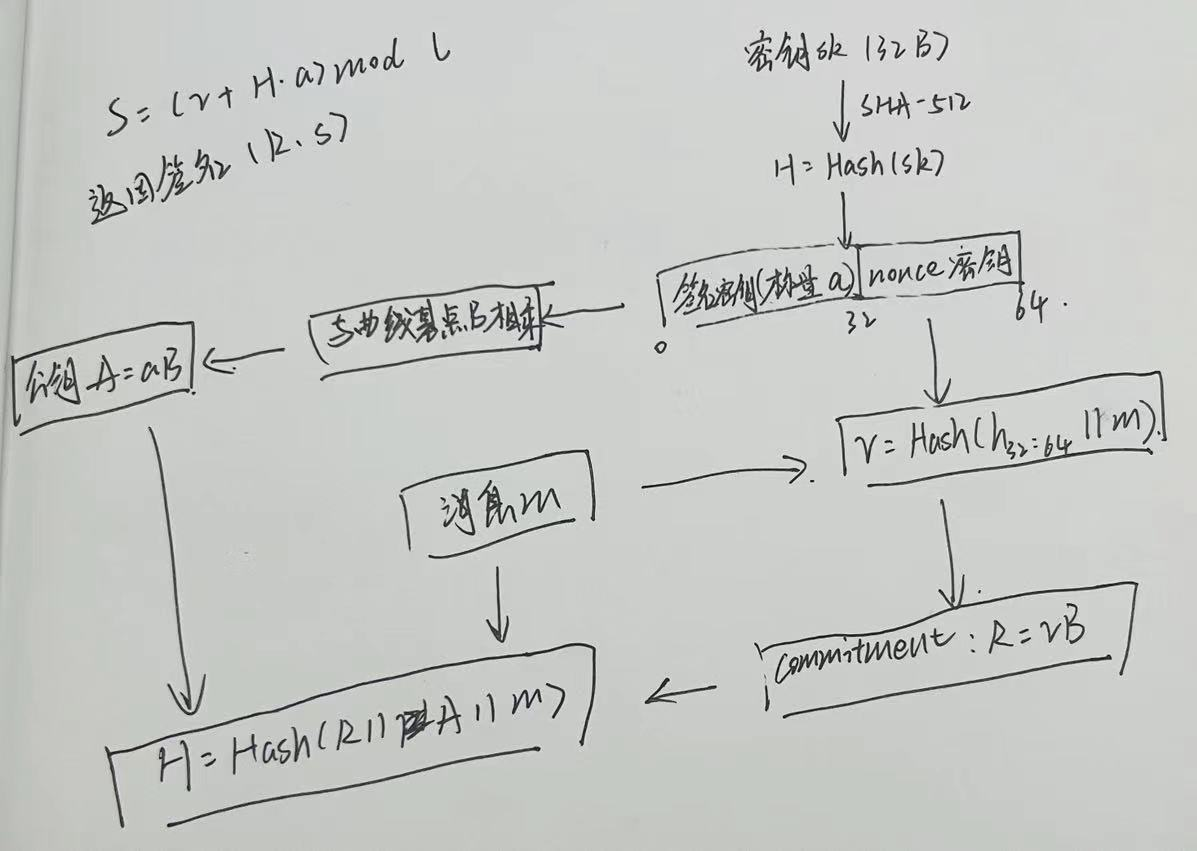 S=(r+H·a)mod l
返回签名(R、S)
密钥sk(32B)
SHA-512
H=Hash(sk)
签名密钥(标量a)
nonce密钥
0
32
64
与曲线基点B相乘
公钥A=aB
r=Hash(h32:64||m)
消息m
commitment:R=rB
H=Hash(R||A||m)